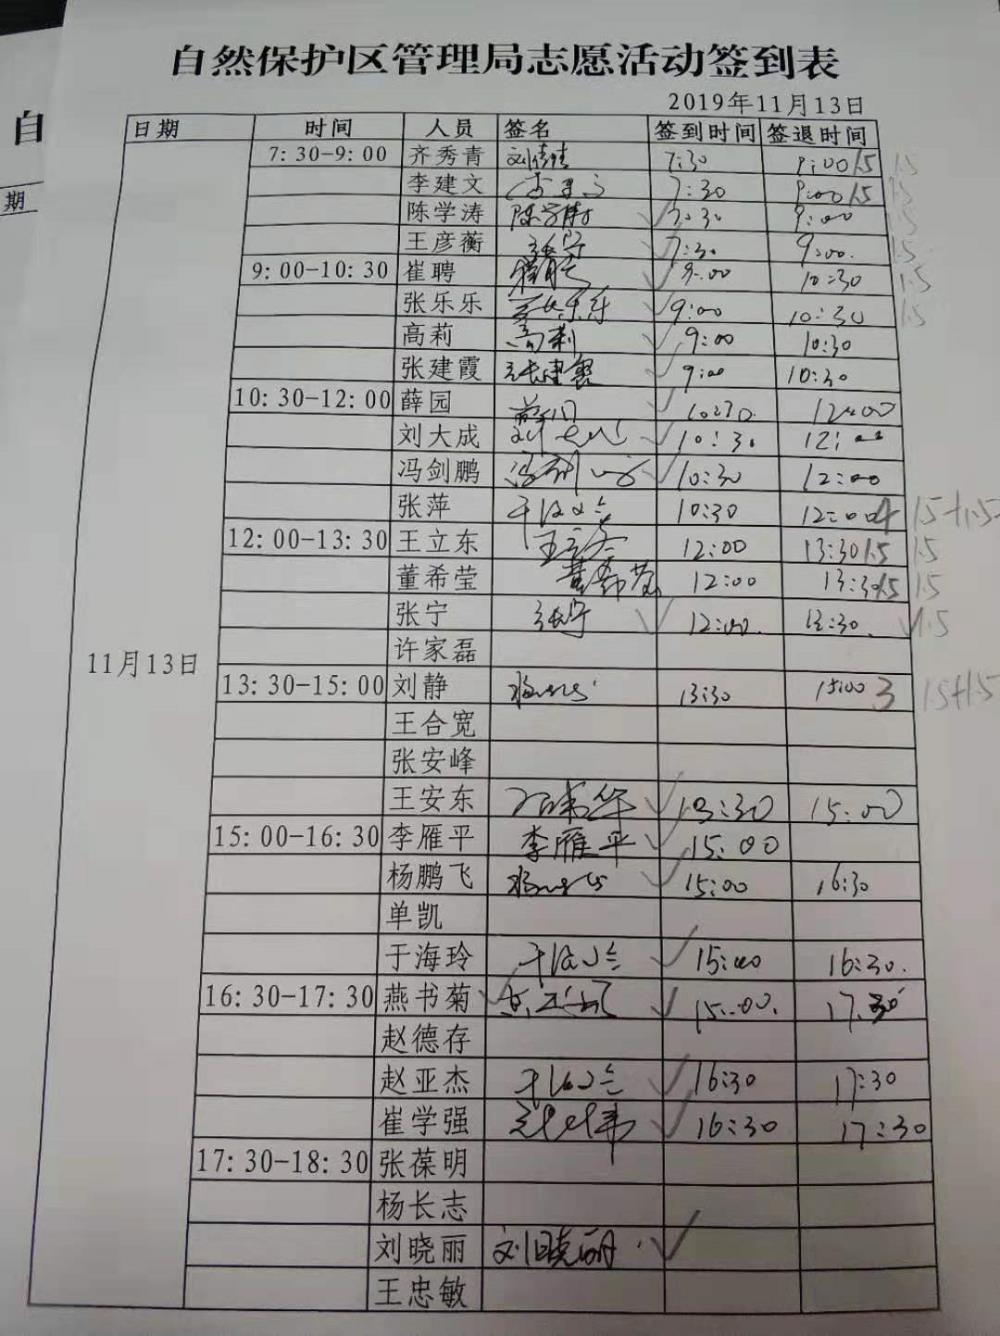 自
期
自然保护区管理局志愿活动签到表
2019年11月13日
日期 时间 人员 签名 签到时间 签退时间
7:30-9:00 齐秀青 刘倩倩 7:30 9:00 1.5 1.5
李建文 7:30 9:00 1.5 1.5
陈学涛 陈学涛 7:30 9:00 1.5
王彦蘅 张宁 7:30 9:00. 1.5
9:00-10:30 崔聘 崔聘 9:00 10:30 1.5
张乐乐 张乐乐 9:00 10:30 1.5
高莉 高莉 9:00 10:30
张建霞 张建霞 9:00 10:30
10:30-12:00 薛园 薛园 10:30. 12:00
刘大成 刘大成 10:30. 12:00
冯剑鹏 冯剑鹏 10:30 12:00
张萍 10:30 12:00 4 1.5+1.5
12:00-13:30 王立东 王立东 12:00 13:30 1.5 1.5
董希莹 董希莹 12:00 13:30 1.5 1.5
张宁 张宁 12:00. 13:30. 1.5
许家磊
11月13日
13:30-15:00 刘静 13:30 15:00 3 1.5+1.5
王合宽
张安峰
王安东 13:30 15:00
15:00-16:30 李雁平 李雁平 15:00
杨鹏飞 15:00 16:30
单凯
于海玲 15:00 16:30.
16:30-17:30 燕书菊 15:00. 17:30
赵德存
赵亚杰 16:30 17:30
崔学强 16:30 17:30
17:30-18:30 张葆明
杨长志
刘晓丽 刘晓丽
王忠敏